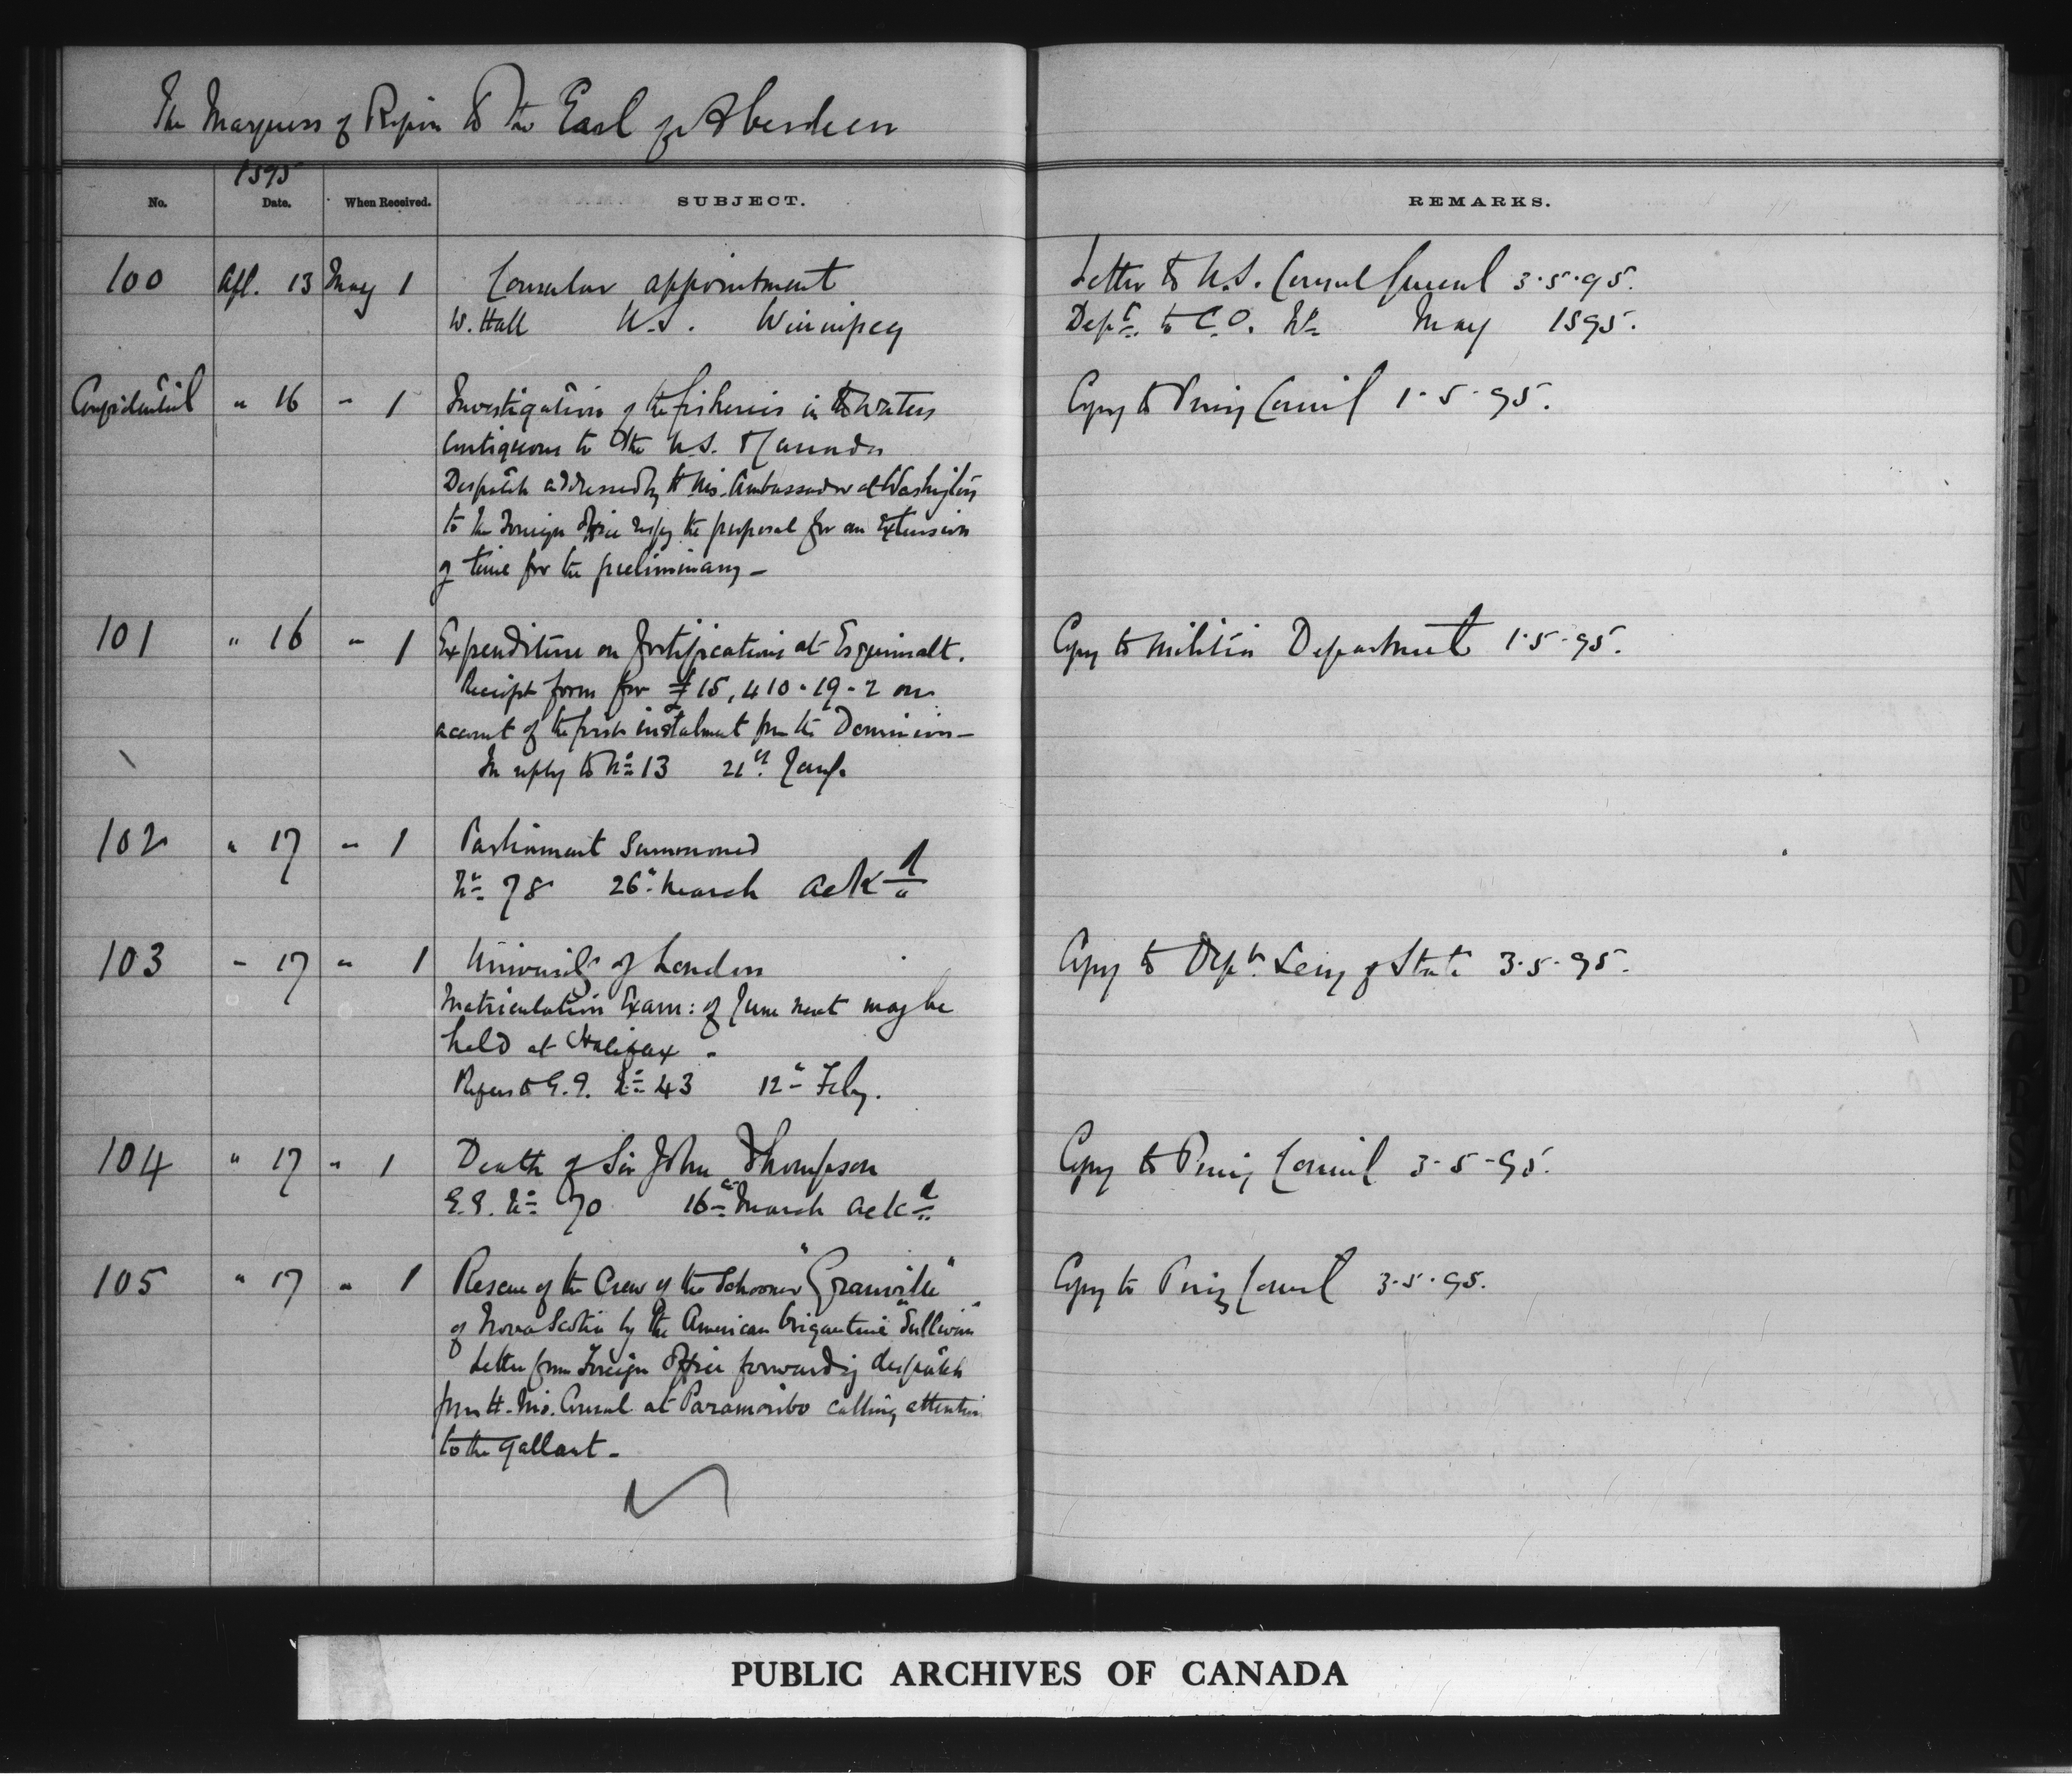 The Marquess of Ripon to the Earl of Aberdeen
1895
No. Date. When Received. SUBJECT. REMARKS.
100 Apl. 13 May 1 Consular appointment Letter to U.S. Consul General 3.5.95.
W. Hall U.S. Winnipeg Dept. to C.O. No May 1895.
Confidential " 16 " 1 Investigation of the fisheries in the waters Copy to Privy Council 1.5.95.
contiguous to the U.S. & Canada
Despatch addressed by H.M's. Ambassador at Washington
to the Foreign Office respg the proposal for an extension
of time for the preliminary -
101 " 16 " 1 Expenditure on fortifications at Esquimalt. Copy to Militia Department 1.5.95.
Receipt form for £15,410-19-2 on
account of the first instalment from the Dominion -
In reply to No 13 21st Jany.
102 " 17 " 1 Parliament Summoned
No 78 26" March ackd
103 " 17 " 1 University of London Copy to Dept. Secy of State 3.5.95.
Matriculation Exam: of June next may be
held at Halifax -
Refers to G.G. No 43 12" Feby.
104 " 17 " 1 Death of Sir John Thompson Copy to Privy Council 3-5-95.
G.G. No 70 16" March ackd
105 " 17 " 1 Rescue of the Crew of the Schooner "Granville" Copy to Privy Council 3.5.95.
of Nova Scotia by the American brigantine "Sullivan"
Letter from Foreign Office forwarding despatch
from H.M's. Consul at Paramoribo calling attention
to the gallant -
PUBLIC ARCHIVES OF CANADA